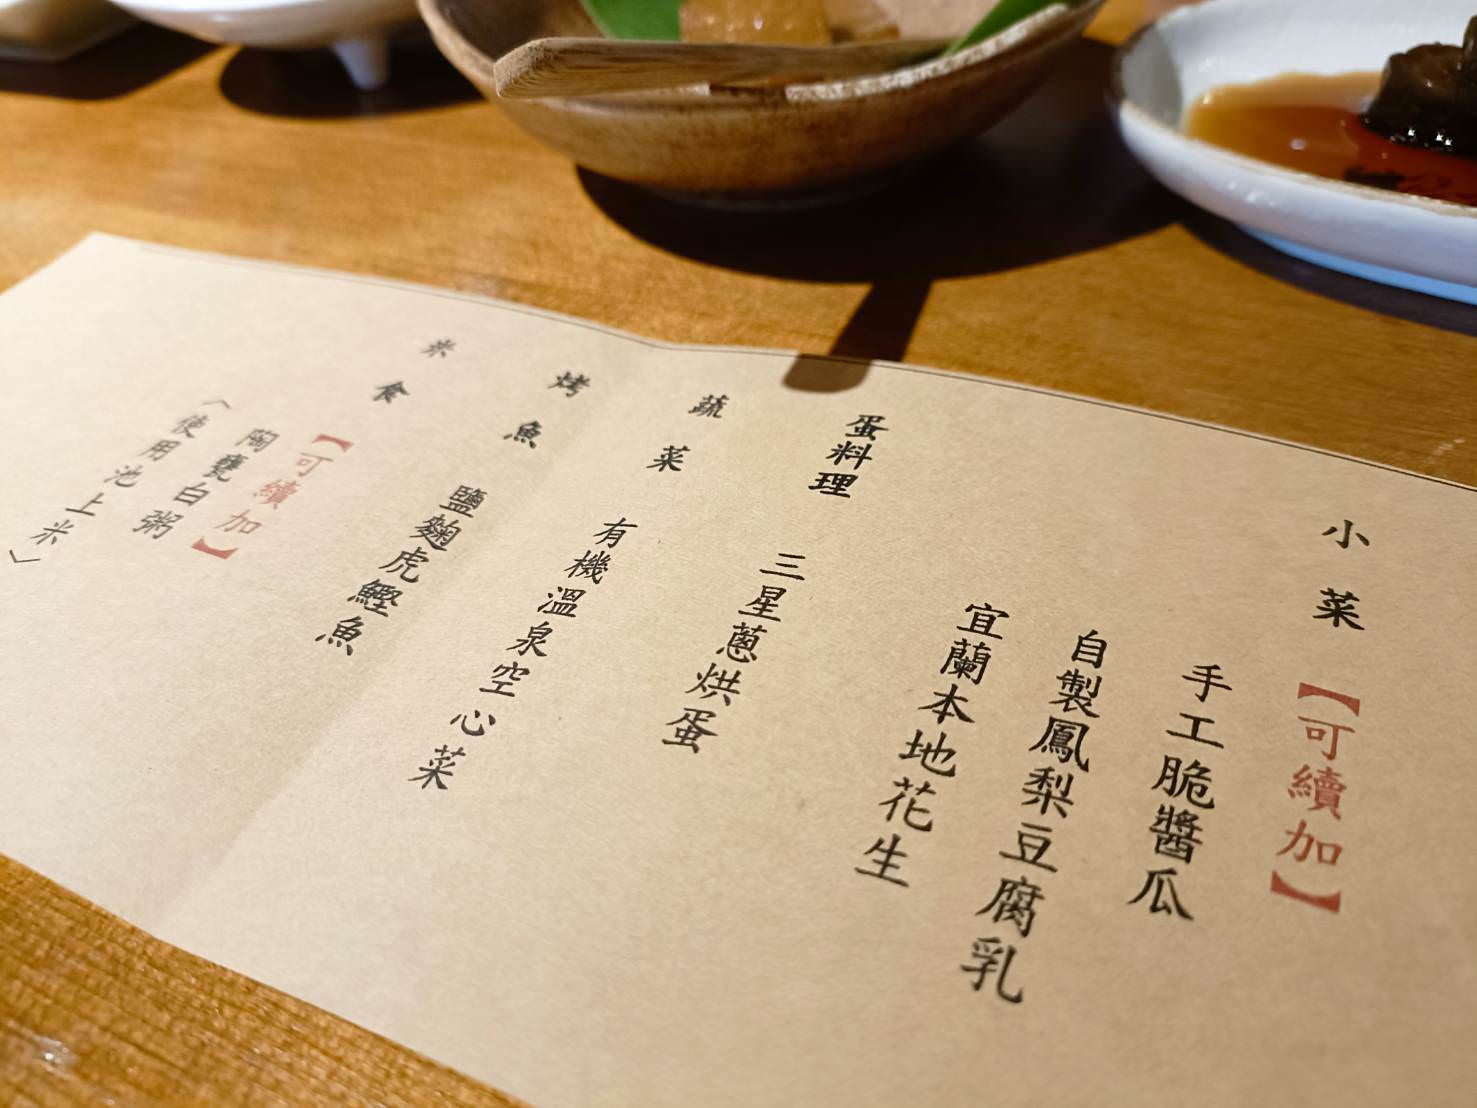 小菜【可續加】
手工脆醬瓜
自製鳳梨豆腐乳
宜蘭本地花生
蛋料理
三星蔥烘蛋
蔬菜
有機溫泉空心菜
烤魚
鹽麴虎鰹魚
米食
【可續加】
陶甕白粥
〈使用池上米〉